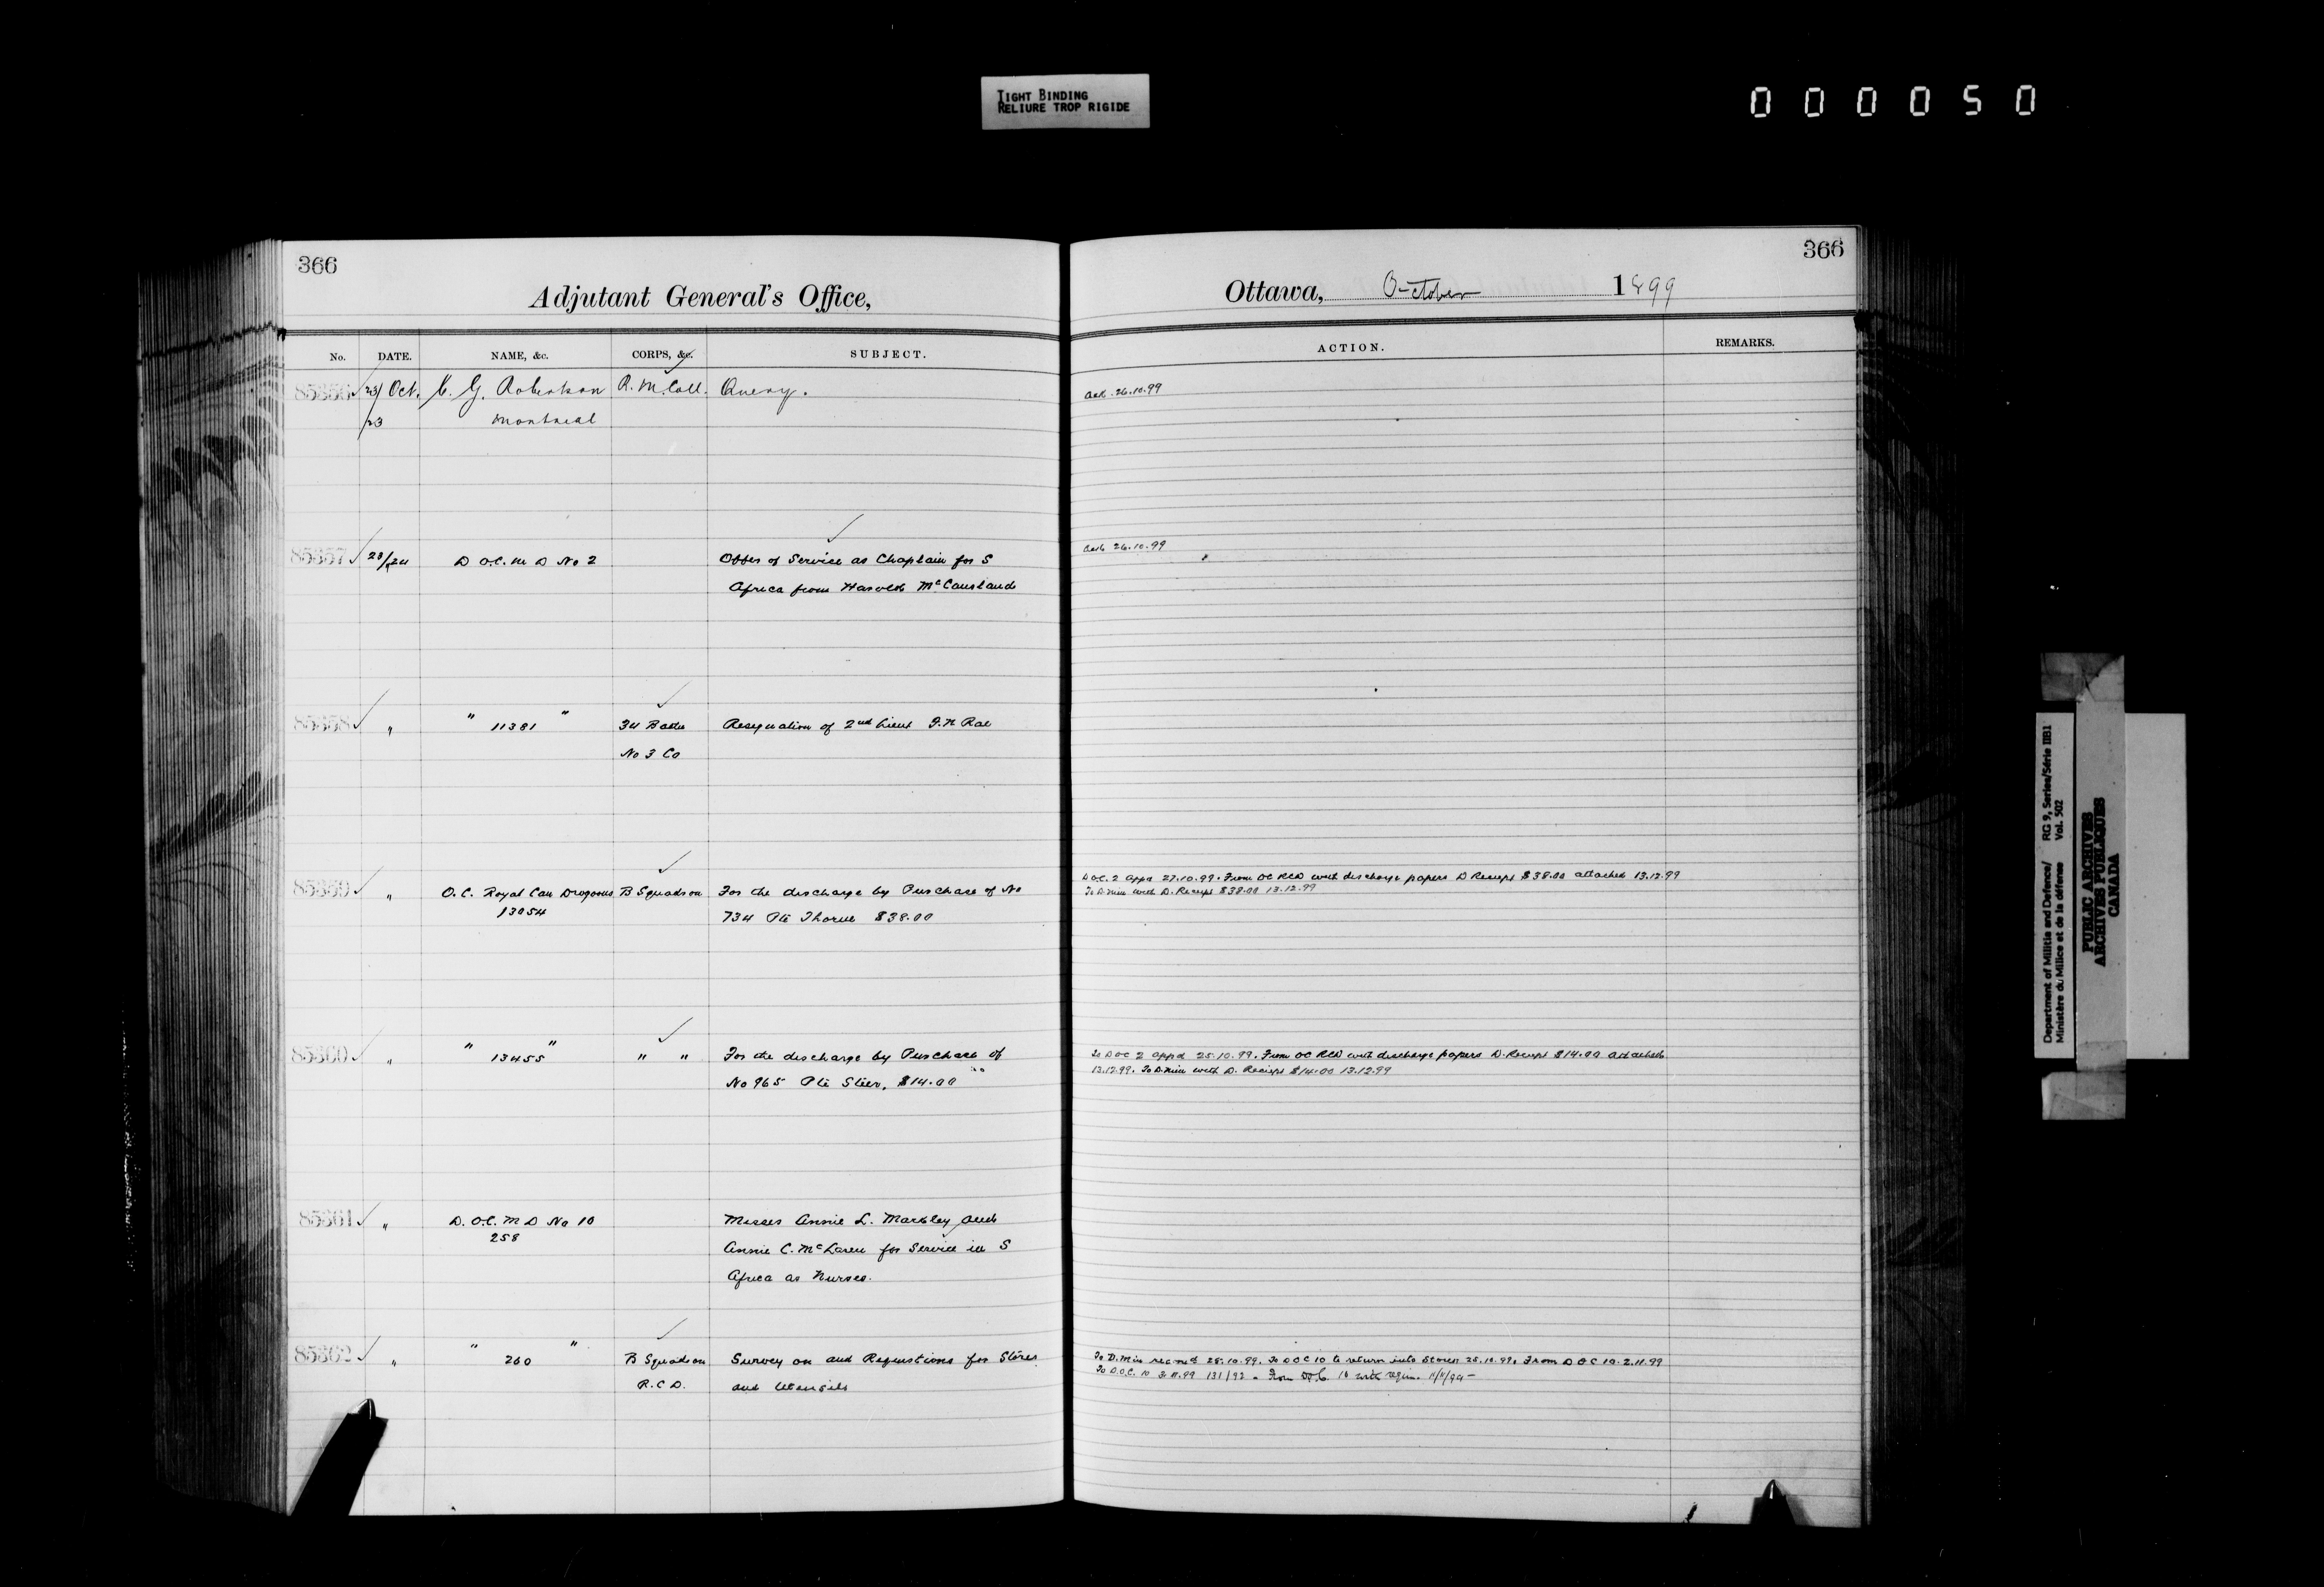 TIGHT BINDING
RELIURE TROP RIGIDE
000050
366
Adjutant General's Office,
No. DATE. NAME, &c. CORPS, &c. SUBJECT.
85356 23/ Oct. C. G. Robertson R. M. Coll. Query.
23 Montreal
85357 23/24 D.O.C. M D No 2 Offer of Service as Chaplain for S
Africa from Harold McCausland
85358 " " 11381 " 34 Battn Resignation of 2nd Lieut Rae
No 3 Co
85359 " O.C. Royal Can Dragoons B Squadron For the discharge by Purchase of No
13054 734 Pte Thorne $38.00
85360 " " 13455 " " " For the discharge by Purchase of
No 965 Pte Stier, $14.00
85361 " D.O.C. M D No 10 Misses Annie L. Markley and
258 Annie C. McLaren for Service in S
Africa as Nurses.
85362 " " 260 " B Squadron Survey on and Requistions for Stores
R.C.D. and Utensils
366
Ottawa, October 1899
ACTION. REMARKS.
Ack. 26.10.99
Ack 26.10.99
D.O.C. 2 Appd 27.10.99. From OC RCD with discharge papers D Receipt $38.00 attached 13.12.99
To D.Min with D. Receipt $38.00 13.12.99
To DOC 2 appd 25.10.99. From OC RCD with discharge papers D. Receipt $14.00 attached
13.12.99. To D.Min with D. Receipt $14.00 13.12.99
To D.Min 25.10.99. To DOC 10 to return into Stores 25.10.99. From DOC 10. 2.11.99
To D.O.C. 10 3.11.99 131/92 - From D.O.C. 10 with
Department of Militia and Defence/ RG 9, Series/Série IIB1
Ministère du Milice et de la défense Vol. 502
PUBLIC ARCHIVES
ARCHIVES PUBLIQUES
CANADA